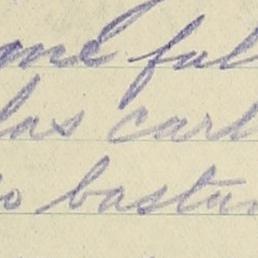 me fal
las cart
o bastan